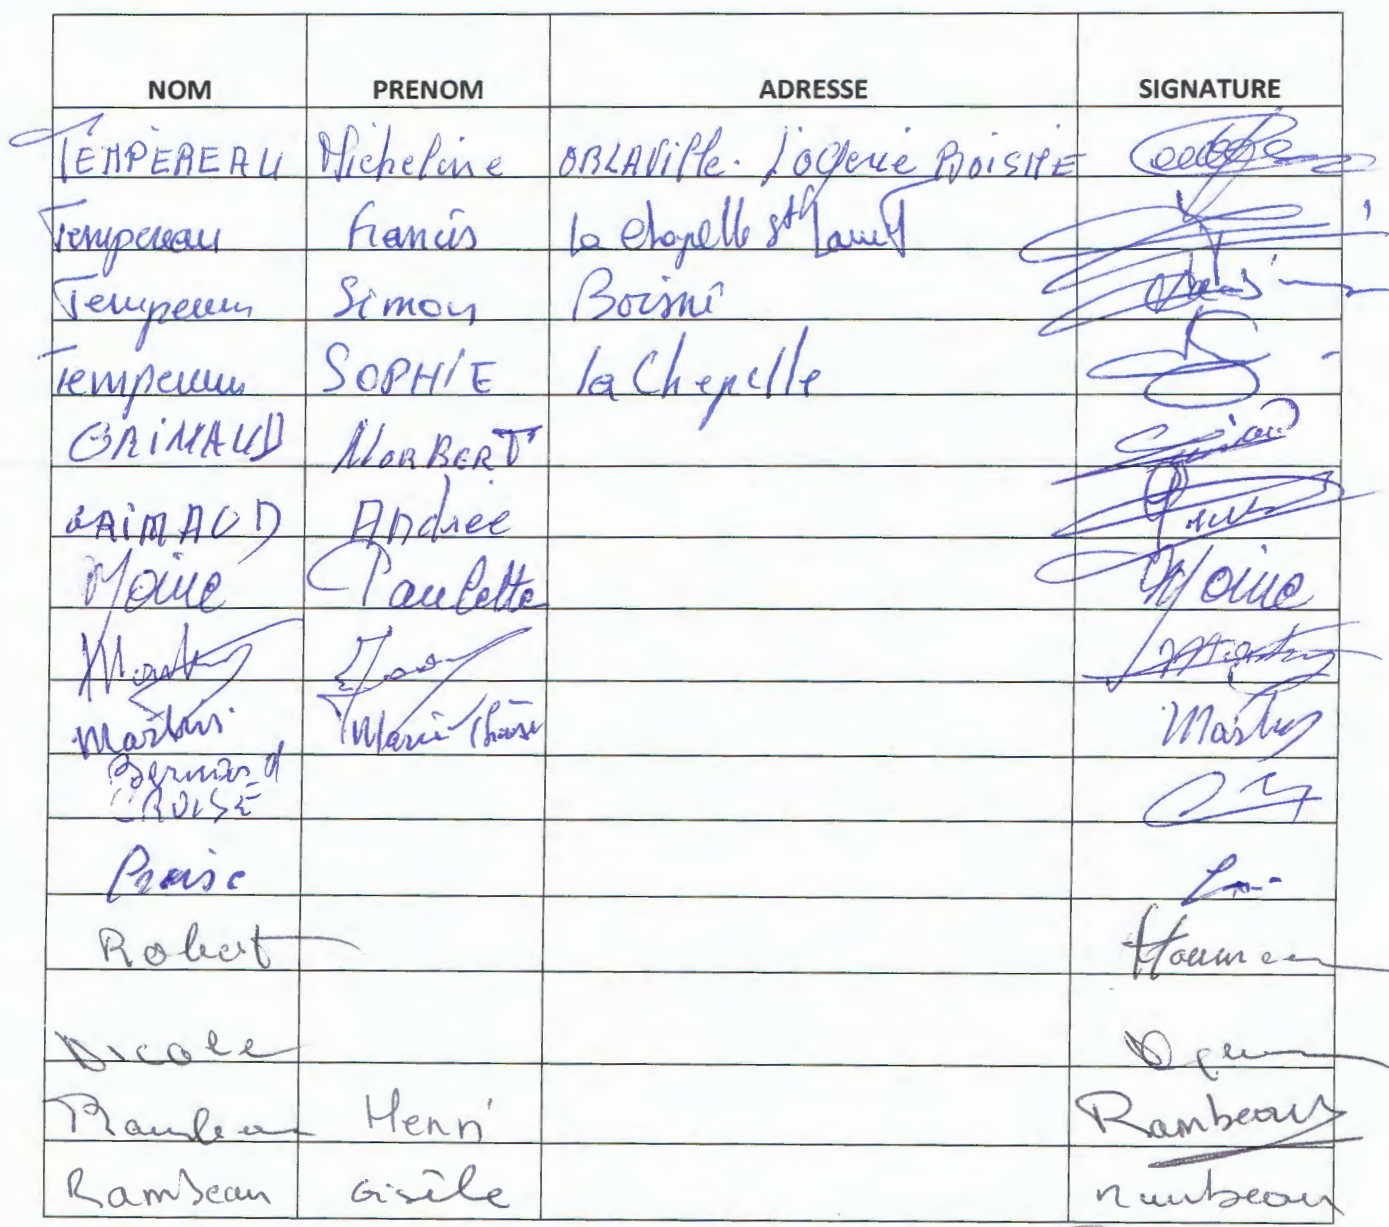 NOM PRENOM ADRESSE SIGNATURE
TEMPÈREAU Micheline OBLAVille. Logerie BOISME
Tempereau Francis la Chapelle St Laurent
Tempereau Simon Boismé
Tempereau SOPHIE la Chapelle
GRIMAUD NORBERT
GRIMAUD Andrée
Moine Paulette Moine
Martin
Martin Marie Martin
Bernard
CROISÉ
Robert
Nicole
Rambeau Henri Rambeau
Rambeau Gisèle Rambeau